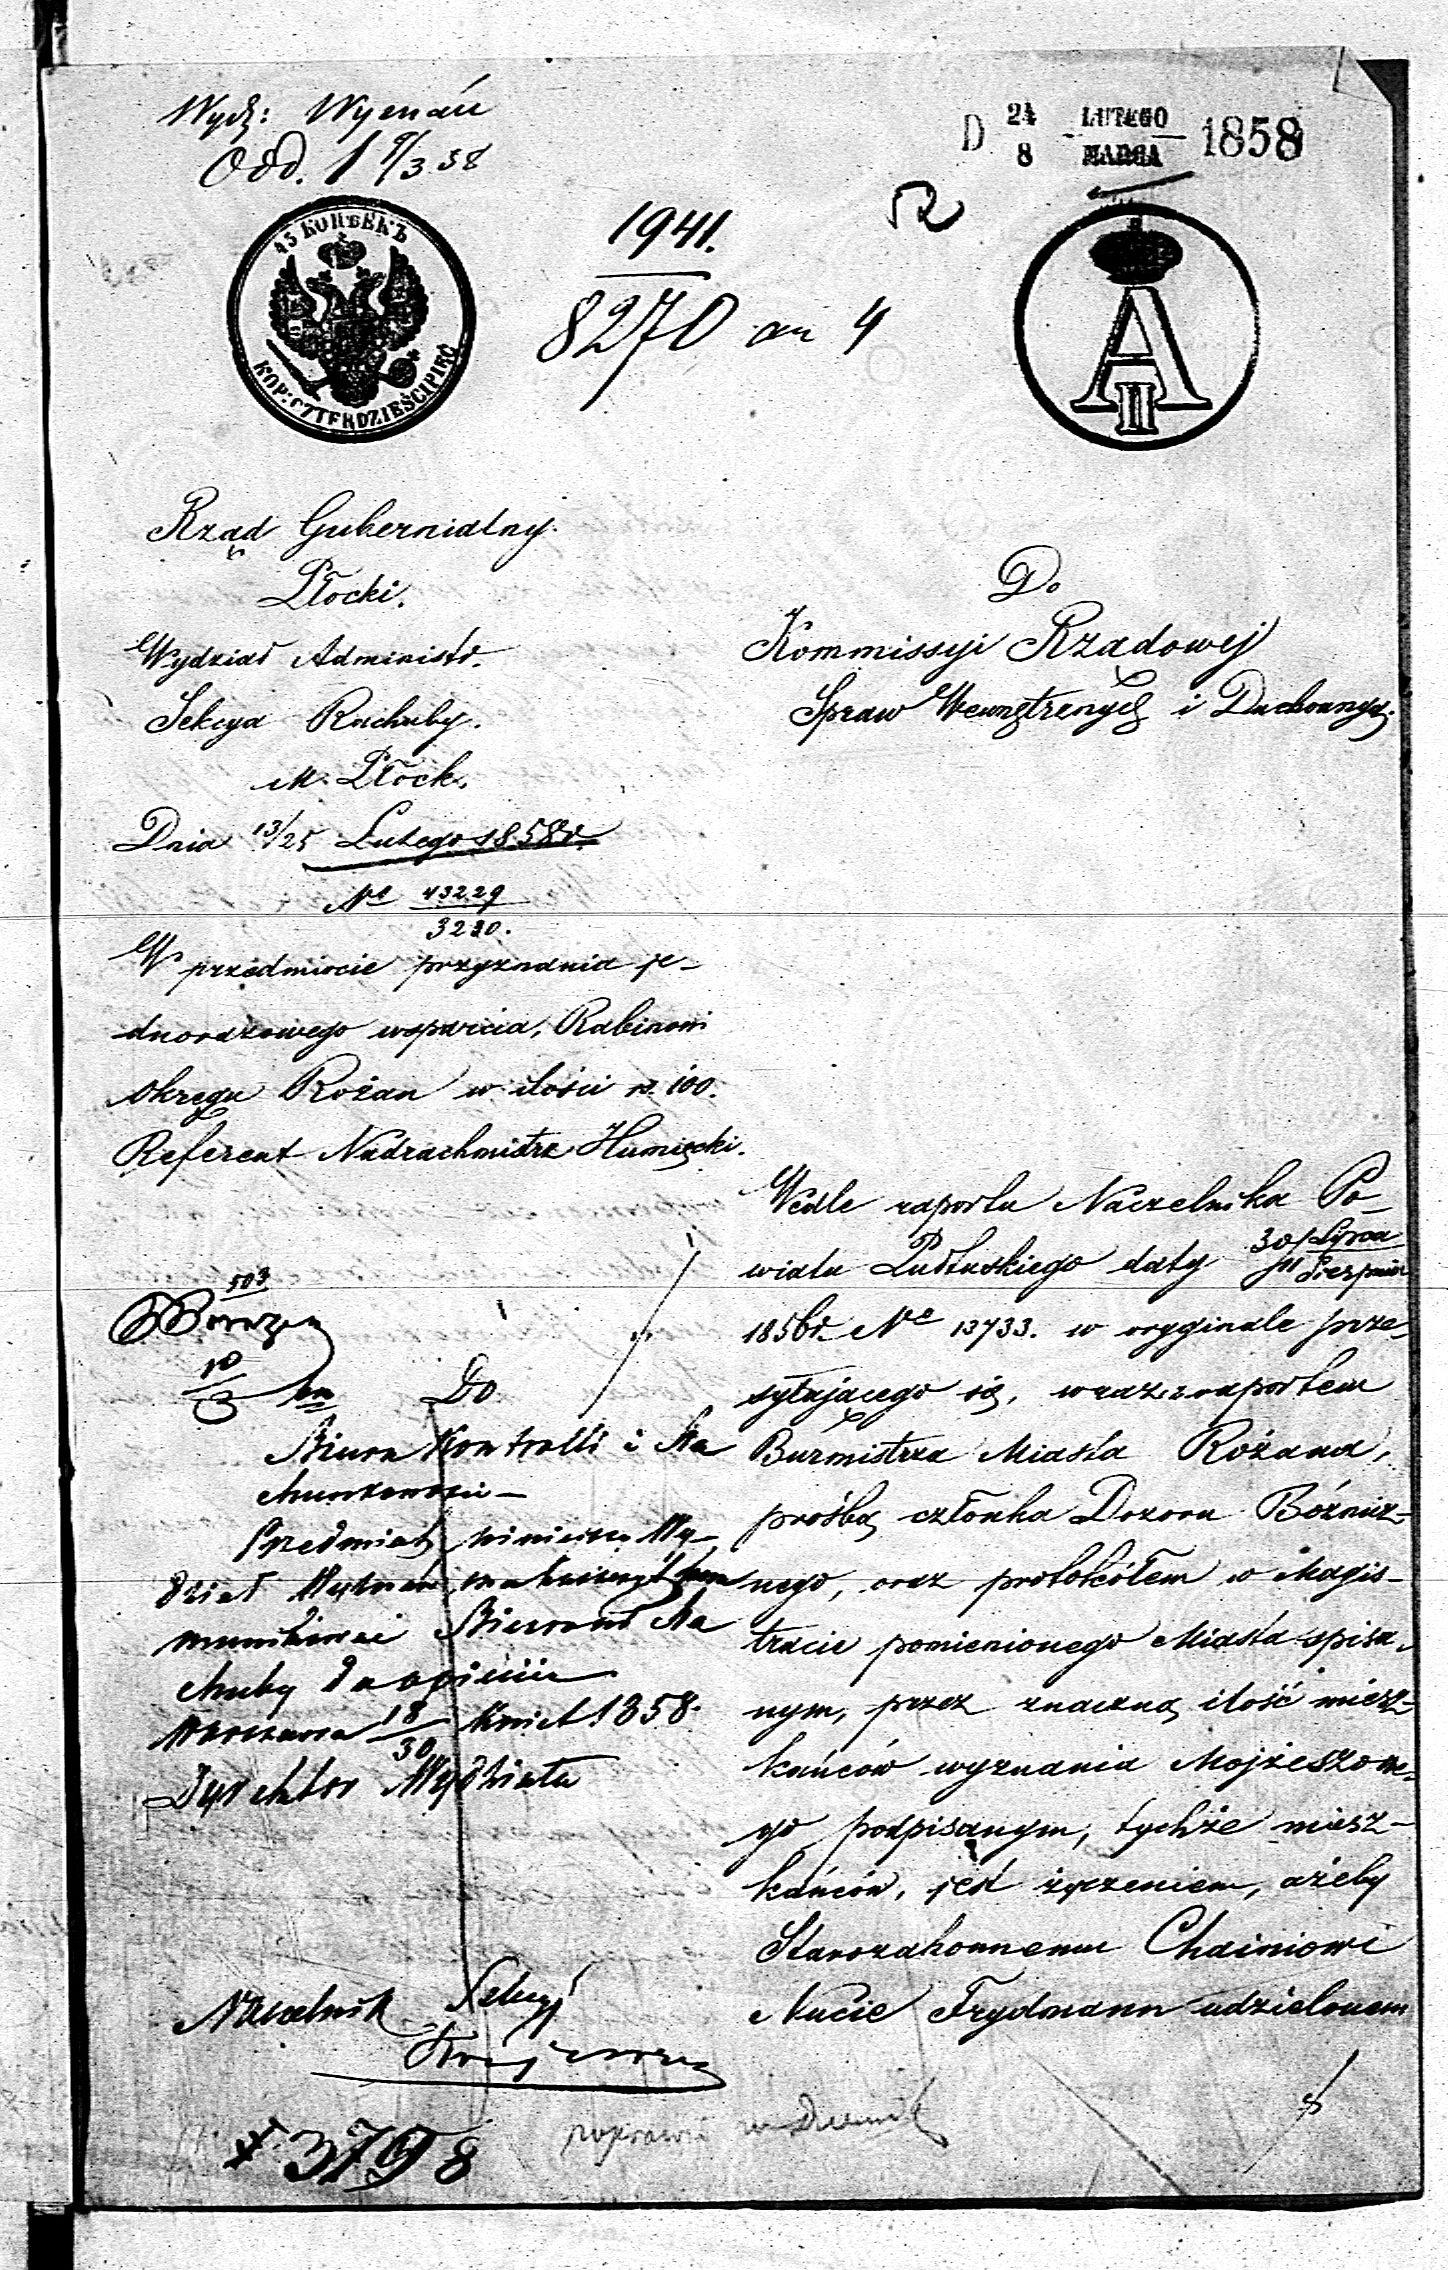 Wydz: Wyznań
Odd. 1 9/3 58
D 24 LUTEGO 1858
8 MARCA
45 КОПѢЕКЪ
KOP: CZTERDZIEŚCI PIĘĆ
1941.
8270 an 4
52
A II
Rząd Gubernialny
Płocki.
Wydział Administr.
Sekcya Rachuby.
M. Płock.
Dnia 13/25 Lutego 1858 r.
No 43229
3230.
W przedmiocie przyznania je-
dnorazowego wsparcia, Rabinowi
okręgu Rożan w ilości rs. 100.
Referent Nadrachmistrz Humięcki.
Do
Kommissyi Rządowej
Spraw Wewnętrznych i Duchownych.
Wedle raportu Naczelnika Po-
wiatu Pułtuskiego daty 30 Lipca
11 Sierpnia
1856 r. No 13733. w oryginale prze-
syłającego się, wraz z raportem
Burmistrza Miasta Rożana,
prośbą członka Dozoru Bóżnicz-
nego, oraz protokółem w Magis-
tracie pomienionego Miasta spisa-
nym, przez znaczną ilość miesz-
kańców wyznania Mojżeszowe-
go podpisanym, tychże miesz-
kańców, jest życzeniem, ażeby
Starozakonnemu Chaimowi
Nucie Frydmann udzielonem
503
10
3
Do
Biura Kontrolli i Ra
chunkowości
Przedmiot niniejszy Wy-
dział Wyznań ma zaszczyt kom
munikować Biurowi Ra
chuby do opinii
Warszawa 18/30 Kwiet. 1858.
Dyrektor Wydziału
Naczelnik Sekcyi
3798
poprawić w